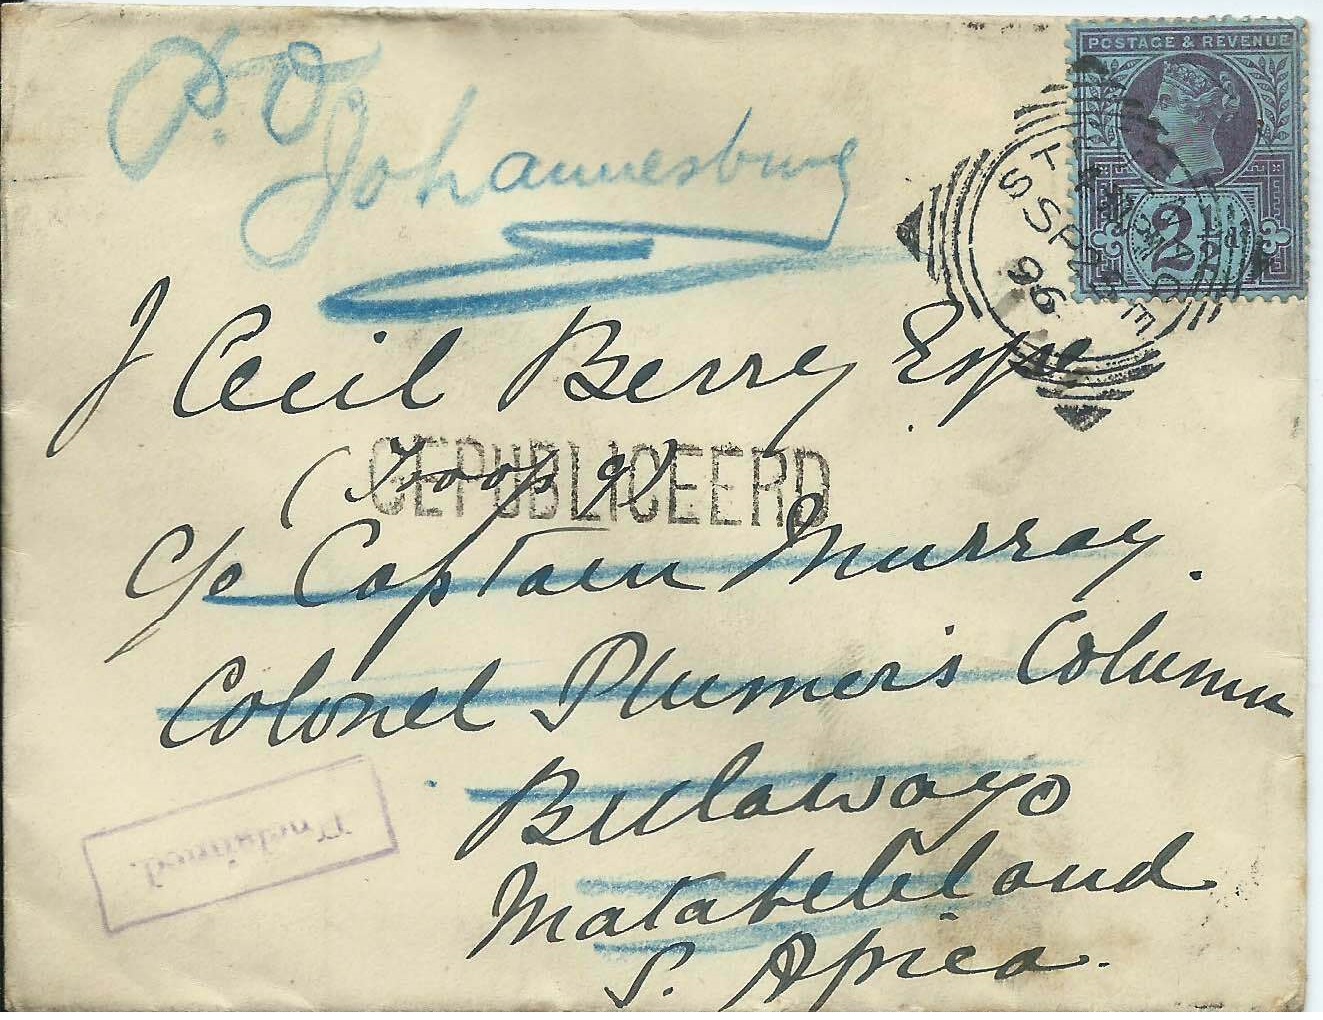 P.O.
Johannesburg
POSTAGE & REVENUE
2½d
96
J Cecil Berry Esqre
(Troop
GEPUBLICEERD
C/o Captain Murray.
Colonel Plumer's Column
Bulawayo
Matabeleland
S. Africa.
Unclaimed.